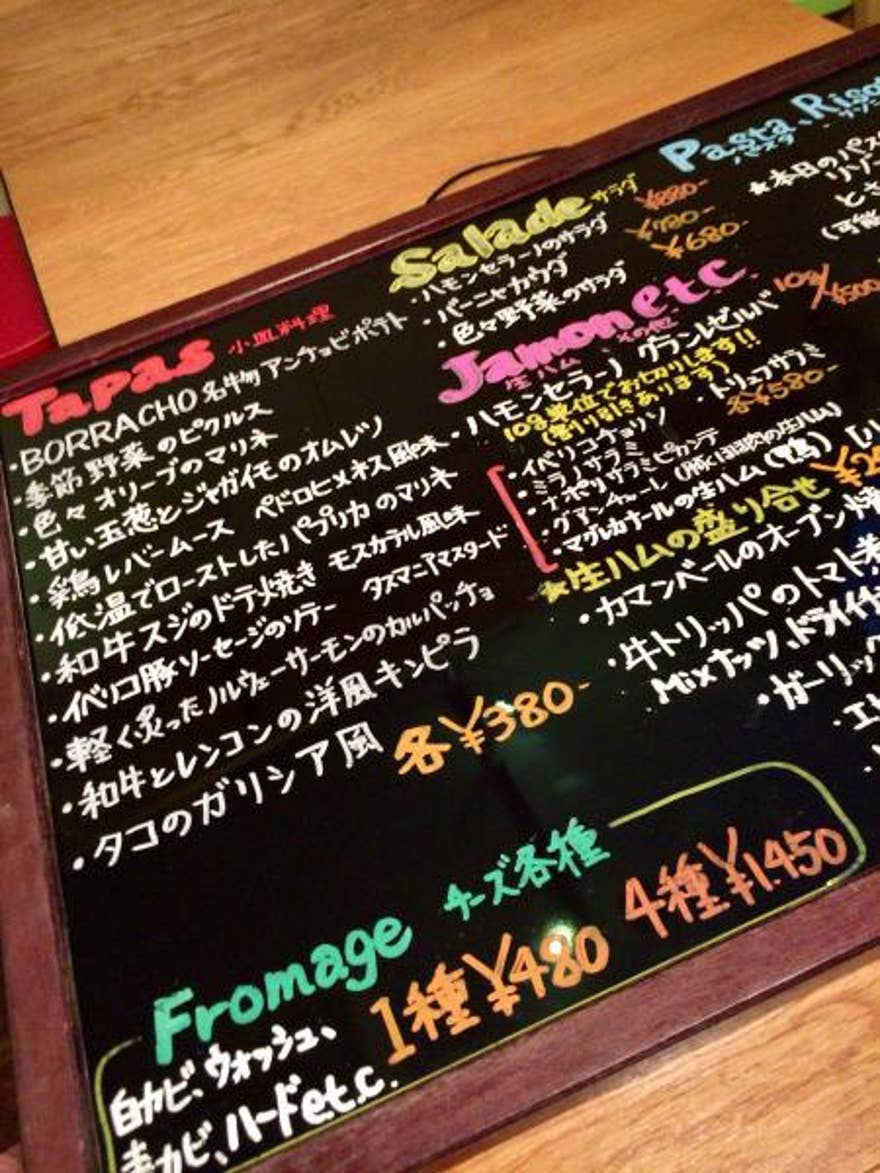 Tapas 小皿料理
・BORRACHO名物アンチョビポテト
・季節野菜のピクルス
・色々オリーブのマリネ
・甘い玉葱とジャガイモのオムレツ
・鶏レバームース ペドロヒメネス風味
・低温でローストしたパプリカのマリネ
・和牛スジのドテ焼き モスカテル風味
・イベリコ豚ソーセージのソテー タスマニアマスタード
・軽く炙ったノルウェーサーモンのカルパッチョ
・和牛とレンコンの洋風キンピラ
・タコのガリシア風
各¥380-
Salade サラダ
・ハモンセラーノのサラダ ¥880-
・バーニャカウダ ¥780-
・色々野菜のサラダ ¥680-
Jamon etc.
生ハム その他
・ハモンセラーノ グランレゼルバ 10g/¥500
10g単位でお切りします!!
(割り引きあります)
・トリュフサラミ
各¥580-
・イベリコチョリソ
・ミラノサラミ
・ナポリサラミピカンテ
・グアンチャーレ
・マグレカナールの生ハム(鴨)
★生ハムの盛り合せ
・カマンベールのオーブン焼
・牛トリッパのトマト煮
Mixナッツ、ドライ
・ガーリック
Pasta、Riso
パスタ
★本日のパス
リゾ
とさ
(可能
Fromage チーズ各種
1種¥480 4種¥1,450
白カビ、ウォッシュ、
青カビ、ハードetc.